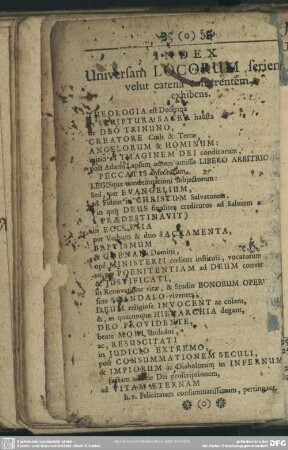 INDEX
Universam LOCORUM seriem
velut catena cohærentem
exhibens.
THEOLOGIA est Doctrina
SCRIPTURA SACRA hausta
de DEO TRINUNO,
CREATORE Cœli & Terræ,
ANGELORUM & HOMINUM:
IMAGINEM DEI conditorum,
post Adami Lapsum amisso LIBERO ARBITRIO
PECCATIS
LEGISque condemnationi subjectorum:
Sed, per EVANGELIUM,
ad Fidem in CHRISTUM Salvatorem
(in quo DEUS finaliter credituros ad Salutem
PRÆDESTINAVIT)
in ECCLESIA
per Verbum & duo SACRAMENTA,
BAPTISMUM
& COENAM Domini,
ope MINISTERII instituti, vocatorum
per POENITENTIAM ad DEUM conver
& JUSTIFICATI,
in Renovatione vitæ, & Studio BONORUM OPERU
sine SCANDALO viventes,
DEUM religiose INVOCENT ac colant,
&, in quacunque HIERARCHIA degant,
DEO PROVIDENTE,
beate MORI studeant,
ac, RESUSCITATI
in JUDICIO EXTREMO,
post CONSUMMATIONEM SECULI,
& IMPIORUM ac Diabolorum in INFERNUM
factam Dei proscriptionem,
ad VITAM ÆTERNAM
h. e. Felicitatem consummatissimam, pertingant.
DFG